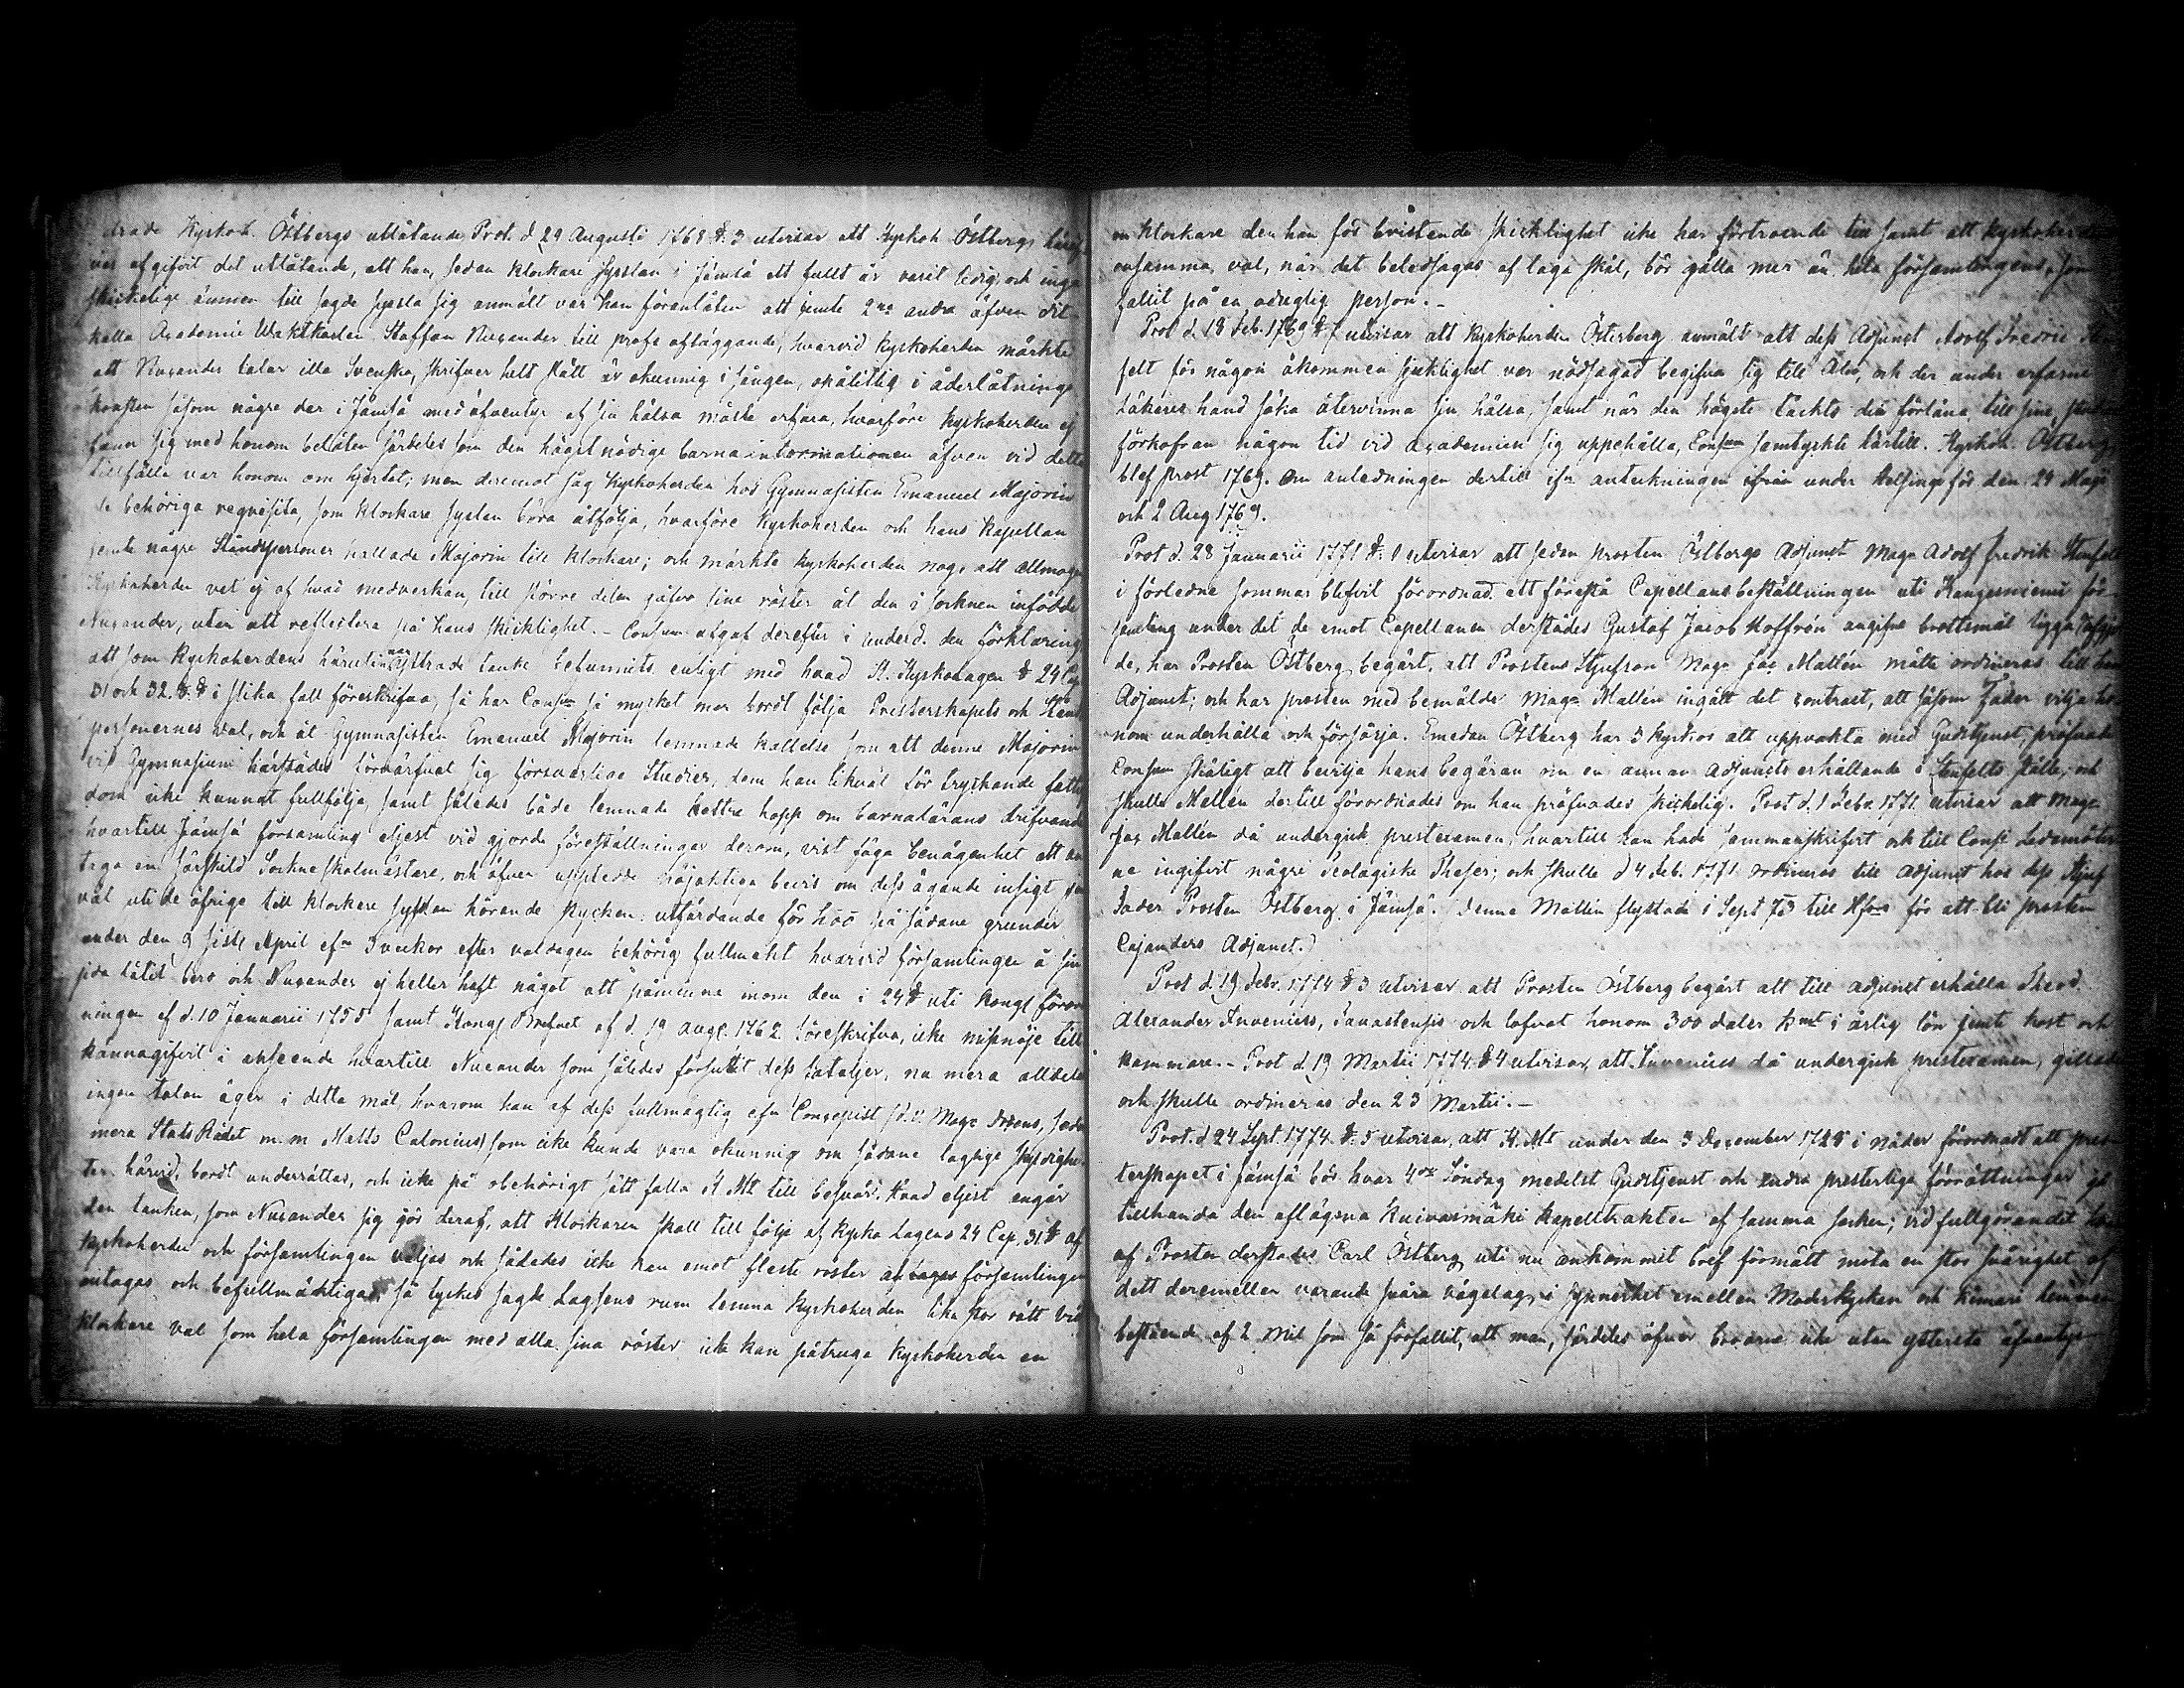 Kyrkoh. Östbergs utlåtande Prot. d 29 Augusti 1768 §. 3 utvisar att Kyrkoh Östberg
afgifvit det utlåtande, att han, sedan klockare sysslan i Jämsä ett fullt år varit ledig, och inga
skickelige ämnen till sagde syssla sig anmält var han föranlåten att jemte 2ne andra äfven dit
kalla Academie Waktkarlen Staffan Nusander till profs afläggande, hvarvid kyrkoherden märkte
att Nusander talar illa Svenska, skrifver helt slätt är okunnig i sången, opålitlig i åderlåtnings
konsten såsom någre der i Jämsä med äfventyr af sin hälsa måste erfara, hvarföre kyrkoherden ej
fann sig med honom belåten särdeles som den högst nödige barna informationen äfven vid detta
tillfälle var honom om hjertat; men deremot såg kyrkoherden hos Gymnasisten Emanuel Majorin
de behöriga requisita, som klockare syslan böra åtfölja, hvarföre kyrkoherden och hans Kapellan
jemte någre Ståndspersoner kallade Majorin till klockare; och märkte kyrkoherden nog, att allmogen
Kyrkoherden vet ej af hvad medverkan, till större delen gåfvo sine röster åt den i socknen infödde
Nusander, utan att reflectera på hans skicklighet. - afgaf derefter i underd. den förklaring
att som Kyrkoherdens härutinnan yttrade tanke befunnits enligt med hvad K. Kyrkolagen § 24 Cap
31 och 32. § § i slika fall föreskrifva, så har så mycket mer bordt följa Presterskapets och Stånds
personernes val, och åt Gymnasisten Emanuel Majorin lemnade kallelse som att denne Majorin
vid Gymnasium härstädes förvärfvat sig försvarliga Studier, dem han likväl för tryckande fattig
dom icke kunnat fullfölja, samt således både lemnade bättre hopp om barnalärans drifvande
hvartill Jämsä församling eljest vid gjorde föreställningar derom, vist föga benägenhet att an
taga en särskild Sockneskolmästare, och äfven upptedde nöjaktiga bevis om dess ägande insigt
väl uti de öfrige till klockare sysslan hörande stycken: utfärdande för honom på sådane grunder
under den 9 siste April efn 3 veckor efter valdagen behörig fullmakt hvarvid församlingen å sin
sida låtit bero och Nusander ej heller haft något att påminna inom den i 24 § uti kongl förord
ningen af d. 10 Januarii 1755 samt Kongl Brefvet af d. 19 Augl. 1762 föreskrifva, icke missnöje till
kännagifvit i anseende hvartill Nusander som således försuttit dess fataljer, nu mera alldeles
ingen talan äger i detta mål, hvarom han af dess fullmägtig efn Concepist (d.v. Magn Docens, seder
mera StatsRådet m. m Matts Calonius) som icke kunde vara okunnig om sådane laglige skyldighe
ter, härvid, bordt underrättas, och icke på obehörigt sätt falla K Mt till besvär. Hvad eljest angår
den tanken, som Nusander sig gör deraf, att Klockaren skall till följe af Kyrko Lagens 24 Cap. 31 § af
kyrkoherden och församlingen väljas och således icke kan emot fleste röster af församlingen
antagas och befullmäktigas, så tyckes sagde Lagsens rum lemna kyrkoherden lika stor rätt vid
klockare val som hela församlingen med alla sina röster icke kan påtruga kyrkoherden en
en klockare den han för bristande skicklighet icke har förtroende till samt att kyrkoherdens
val, när det beledsagas af laga skäl, bör gälla mer än hela församlingens, som
fallit på en oduglig person. -
Prot d. 18 Feb. 1769 § 7 utvisar att kyrkoherden Östberg anmält att dess Adjunct Adolf Fredric
felt för någon åkommen sjuklighet var nödsagad begifva sig till Åbo, och der under erfarne
Läkeres hand söka återvinna sin hälsa, samt när den högste täckts den förläna, till sine
förkofran någon tid vid academien sig uppehålla, samtyckte härtill. Kyrkoh. Östberg
blef prost 1769. Om anledningen dertill ifn anteckningen under Helsinge för den 24 Maji
och 2 Aug 1769.
Prot d. 28 Januarii 1771 §. 1 utvisar att sedan prosten Östbergs Adjunct Magn Adolf Fredrik Stenfelt
i förledne sommar blifvit förordnad att förestå Capellans beställningen uti Kangasniemi för
samling under det de emot Capellanen derstädes Gustaf Jacob Hoffrén angifne brottsmål ligga
de, har Prosten Östberg begärt, att Prostens Styfson Magn Jac Mallén måtte ordineras till hans
Adjunct; och har prosten med bemälde Magn Mallén ingått det contract, att såsom Fader vilja ho
nom underhålla och försörja. Emedan Östberg har 3 kyrkor att uppvakta med Gudstjenst, pröfvade
skäligt att bevilja hans begäran om en annan adjuncts erhållande i Stenfelts ställe, och
skulle Mallén dertill förordnades om han pröfvades skickelig. Prot d. 1 Febr. 1771 utvisar att Magn
Jac Mallén då undergick prestexamen, hvartill han hade sammanskrifvit och till Consi Ledamöter
ne ingifvit någre Teologiske Theser; och skulle d 4 Feb. 1771 ordineras till adjunct hos dess Stjuf
Fader Prosten Östberg i Jämsä. (Denne Mallén flyttade i Sept 73 till Hfors för att bli prosten
Cajanders Adjunct.)
Prot d. 19 Febr. 1774 § 3 utvisar att Prosten Östberg begärt att till adjunct erhålla Theod.
Alexander Invenius, Tavastensis och lofvat honom 300 daler kmt i årlig lön jemte kost och
kammare. - Prot d. 19 Martii 1774. § 4 utvisar, att Invenius då undergick prestexamen, gillades
och skulle ordineras den 23 Martii. -
Prot. d 24 Sept. 1774. §. 5 utvisar, att K. Mt under den 3 December 1728 i nåder förordnadt att pres
terskapet i Jämsä bör hvar 4de Söndag medelst Gudstjenst och andra presterliga förrättningar gå
tillhanda den aflägsna Kuivasmäki kapelltrakten af samma socken; vid fullgörandet
af Prosten derstädes Carl Östberg uti nu ankommit bref förmält möta en stor svårighet af
dett deremellan varande svåra vägelag, i synnerhet emellan Moderkyrkan och Kimari hemman
bestående af 2 mil som så förfallit, att man, särdeles öfver broarne icke utan ytterste äfventyr